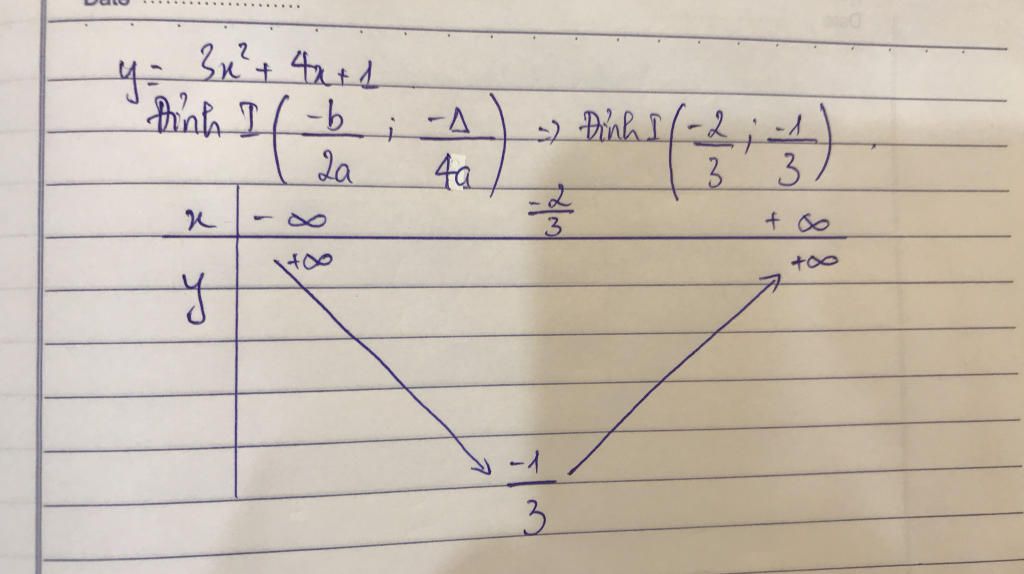 Date
y = 3x² + 4x + 1
Đỉnh I (-b/2a ; -Δ/4a) => Đỉnh I (-2/3 ; -1/3).
x | -∞ -2/3 +∞
y | +∞ -1/3 +∞